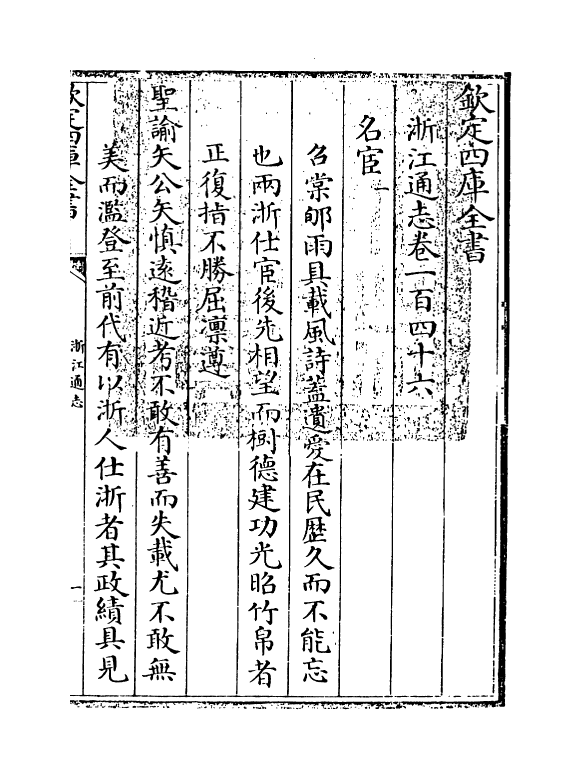 欽定四庫全書
浙江通志卷一百四十六
名宦一
召棠郇雨具載風詩蓋遺愛在民歴久而不能忘
也兩浙仕宦後先相望而樹德建功光昭竹帛者
正復指不勝屈凛遵
聖諭矢公矢慎逺稽近考不敢有善而失載尤不敢無
美而濫登至前代有以浙人仕浙者其政績具見
欽定四庫全書
浙江通志
一